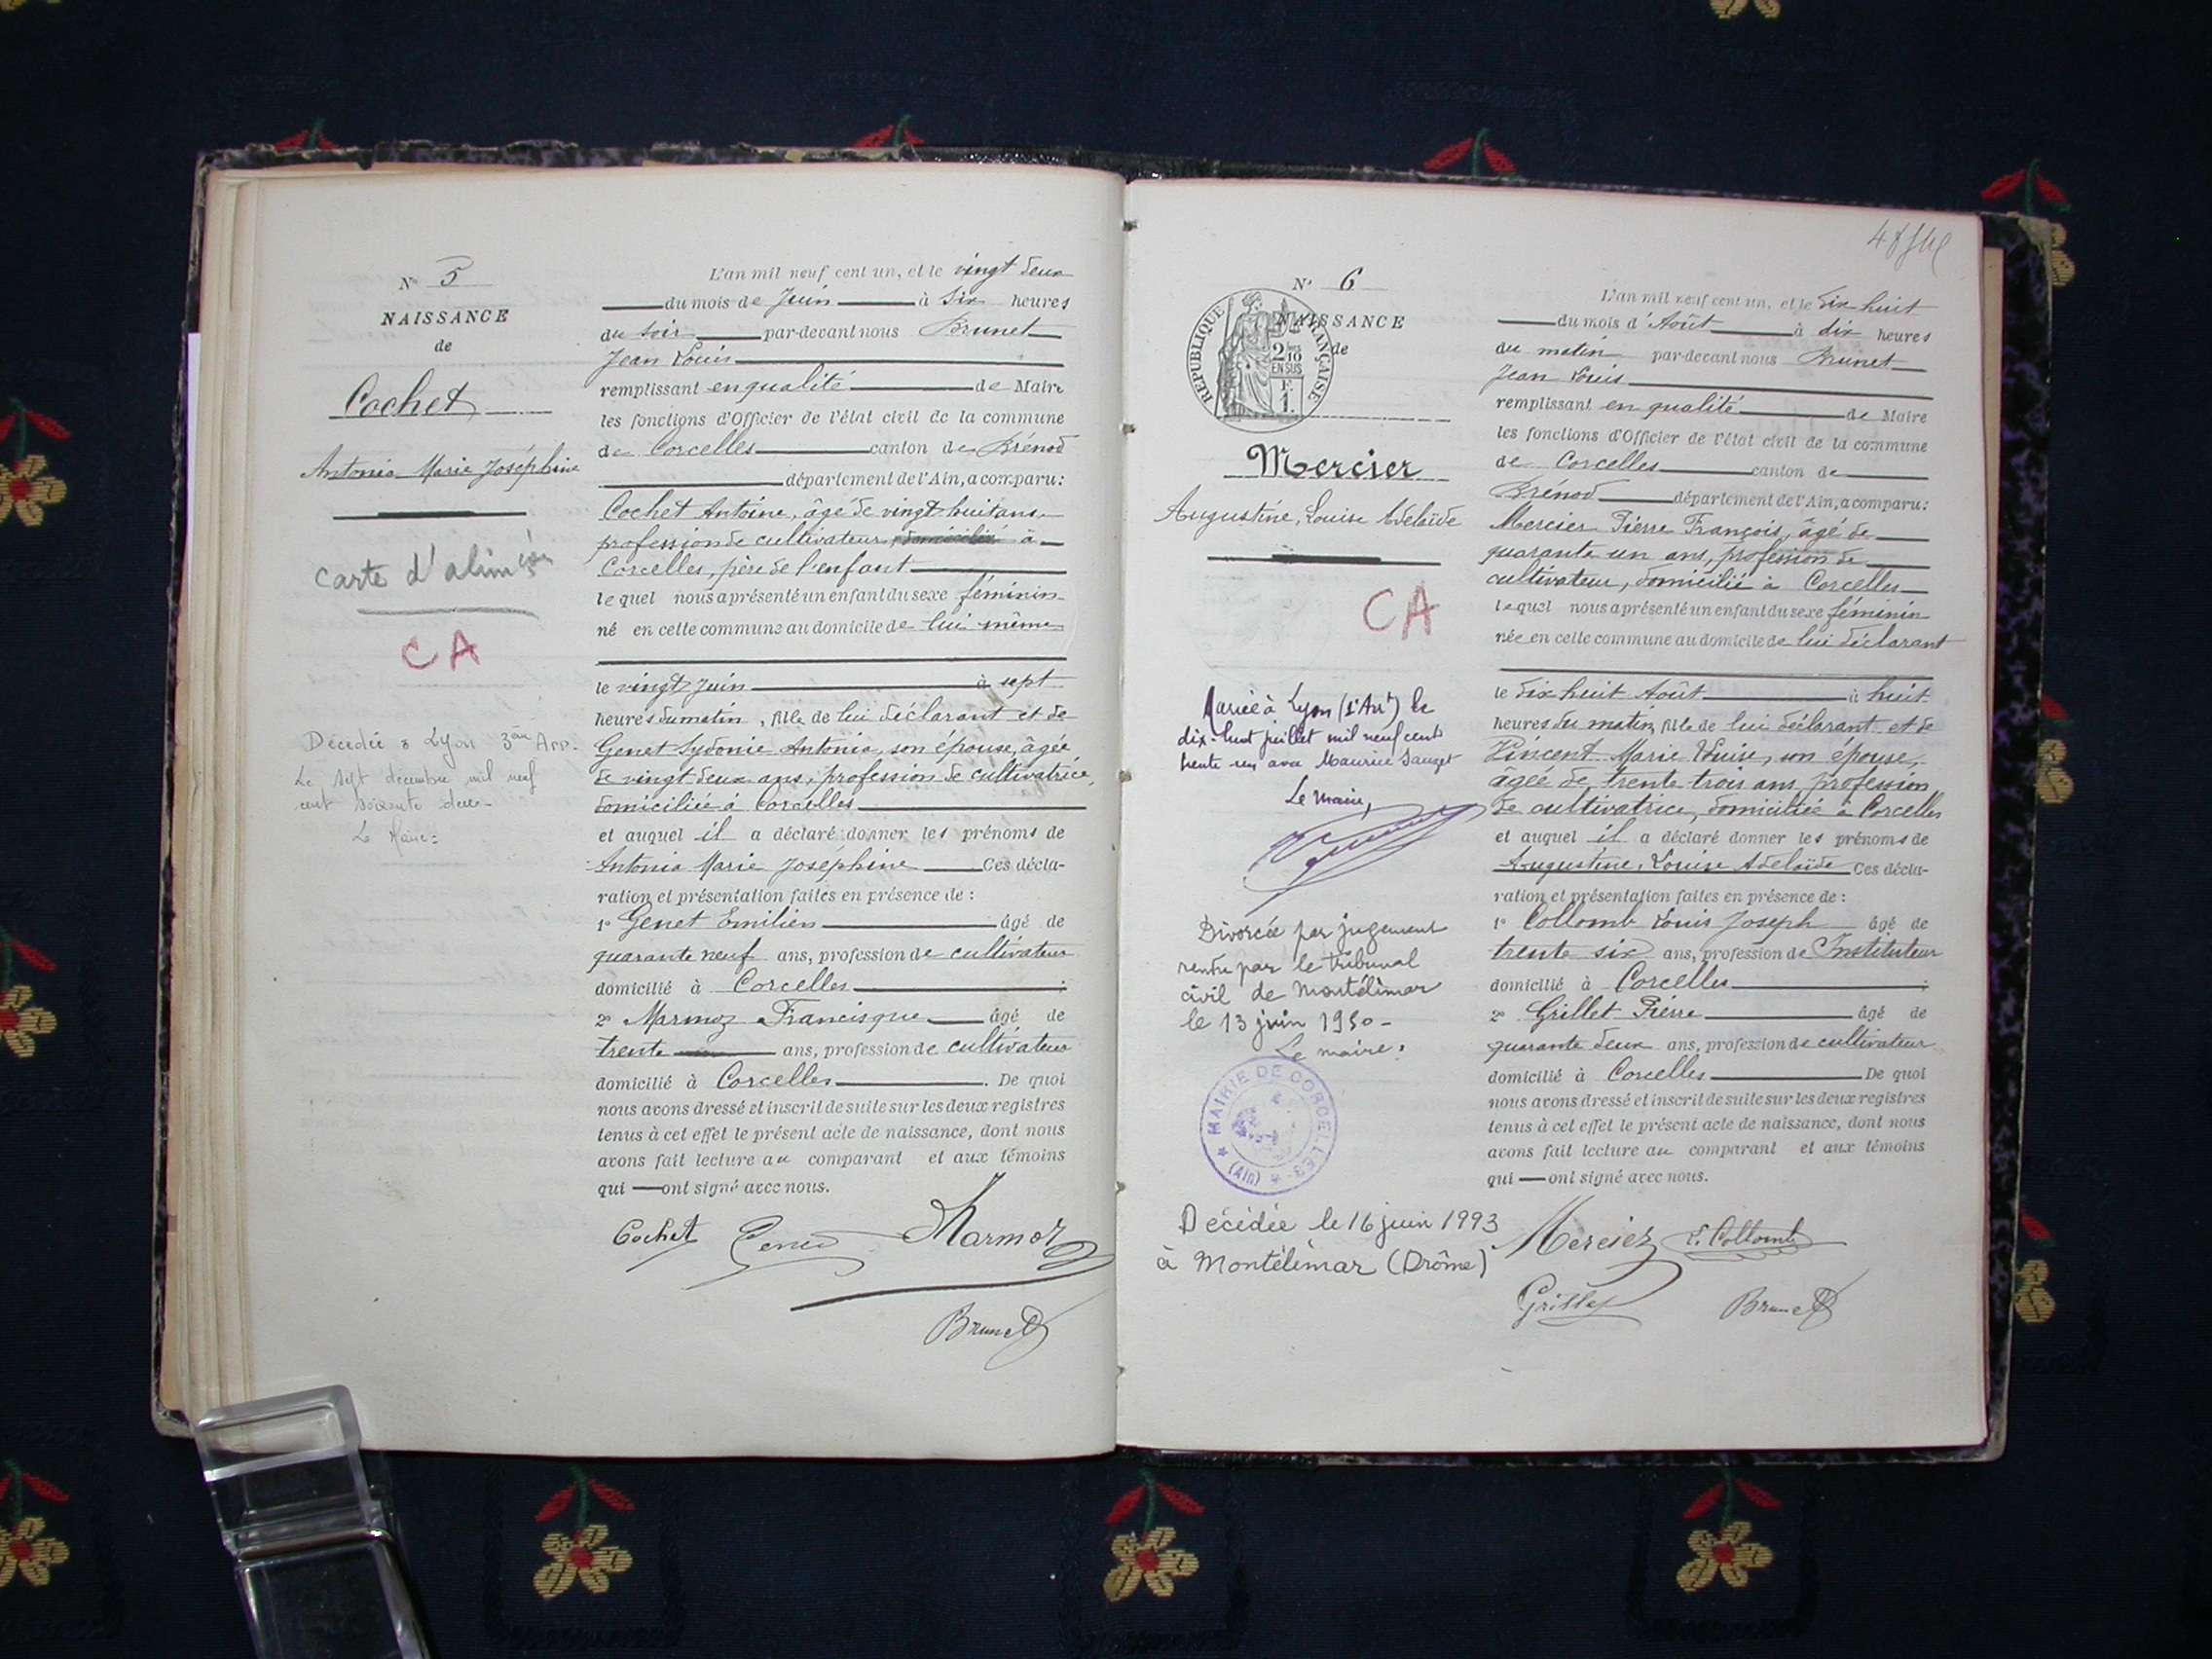 N° 5
NAISSANCE
de
Cochet
Antonia Marie Joséphine
carte d'alim
CA
Décédée à Lyon 3ème Arr.
Le sept décembre mil neuf
cent soixante deux
Le Maire:
L'an mil neuf cent un, et le vingt deux
du mois de Juin à six heures
du soir par-devant nous Brunet
Jean Louis
remplissant en qualité de Maire
les fonctions d'Officier de l'état civil de la commune
de Corcelles canton de Brénod
département de l'Ain, a comparu:
Cochet Antoine, âgé de vingt huit ans,
profession de cultivateur à
Corcelles, père de l'enfant
lequel nous a présenté un enfant du sexe féminin
né en cette commune au domicile de lui même
le vingt Juin à sept
heures du matin, fille de lui déclarant et de
Genet Sydonie Antonia, son épouse, âgée
de vingt deux ans, profession de cultivatrice,
domiciliée à Corcelles
et auquel il a déclaré donner les prénoms de
Antonia Marie Joséphine Ces décla-
ration et présentation faites en présence de :
1° Genet Emilien âgé de
quarante neuf ans, profession de cultivateur
domicilié à Corcelles ;
2° Marmoz Francisque âgé de
trente ans, profession de cultivateur
domicilié à Corcelles . De quoi
nous avons dressé et inscrit de suite sur les deux registres
tenus à cet effet le présent acte de naissance, dont nous
avons fait lecture au comparant et aux témoins
qui ont signé avec nous.
Cochet Genet Marmoz
Brunet
N° 6
NAISSANCE
de
RÉPUBLIQUE FRANÇAISE
2/10
EN SUS
1 F.
Mercier
Augustine, Louise Adelaïde
CA
Mariée à Lyon (1er Arrt) le
dix-huit juillet mil neuf cent
trente un avec Maurice Sauzet
Le Maire,
Divorcée par jugement
rendu par le tribunal
civil de Montélimar
le 13 juin 1950 -
Le maire:
MAIRIE DE CORCELLES
(Ain)
Décédée le 16 juin 1993
à Montélimar (Drôme)
L'an mil neuf cent un, et le dix huit
du mois d'Août à dix heures
du matin par-devant nous Brunet
Jean Louis
remplissant en qualité de Maire
les fonctions d'Officier de l'état civil de la commune
de Corcelles canton de
Brénod département de l'Ain, a comparu:
Mercier Pierre François, âgé de
quarante un ans, profession de
cultivateur, domicilié à Corcelles
lequel nous a présenté un enfant du sexe féminin
née en cette commune au domicile de lui déclarant
le dix huit Août à huit
heures du matin, fille de lui déclarant et de
Vincent Marie Louise, son épouse,
âgée de trente trois ans, profession
de cultivatrice, domiciliée à Corcelles
et auquel il a déclaré donner les prénoms de
Augustine, Louise Adelaïde Ces décla-
ration et présentation faites en présence de :
1° Collomb Louis Joseph âgé de
trente six ans, profession de Instituteur
domicilié à Corcelles ;
2° Grillet Pierre âgé de
quarante deux ans, profession de cultivateur
domicilié à Corcelles De quoi
nous avons dressé et inscrit de suite sur les deux registres
tenus à cet effet le présent acte de naissance, dont nous
avons fait lecture au comparant et aux témoins
qui ont signé avec nous.
Mercier L. Collomb
Grillet Brunet